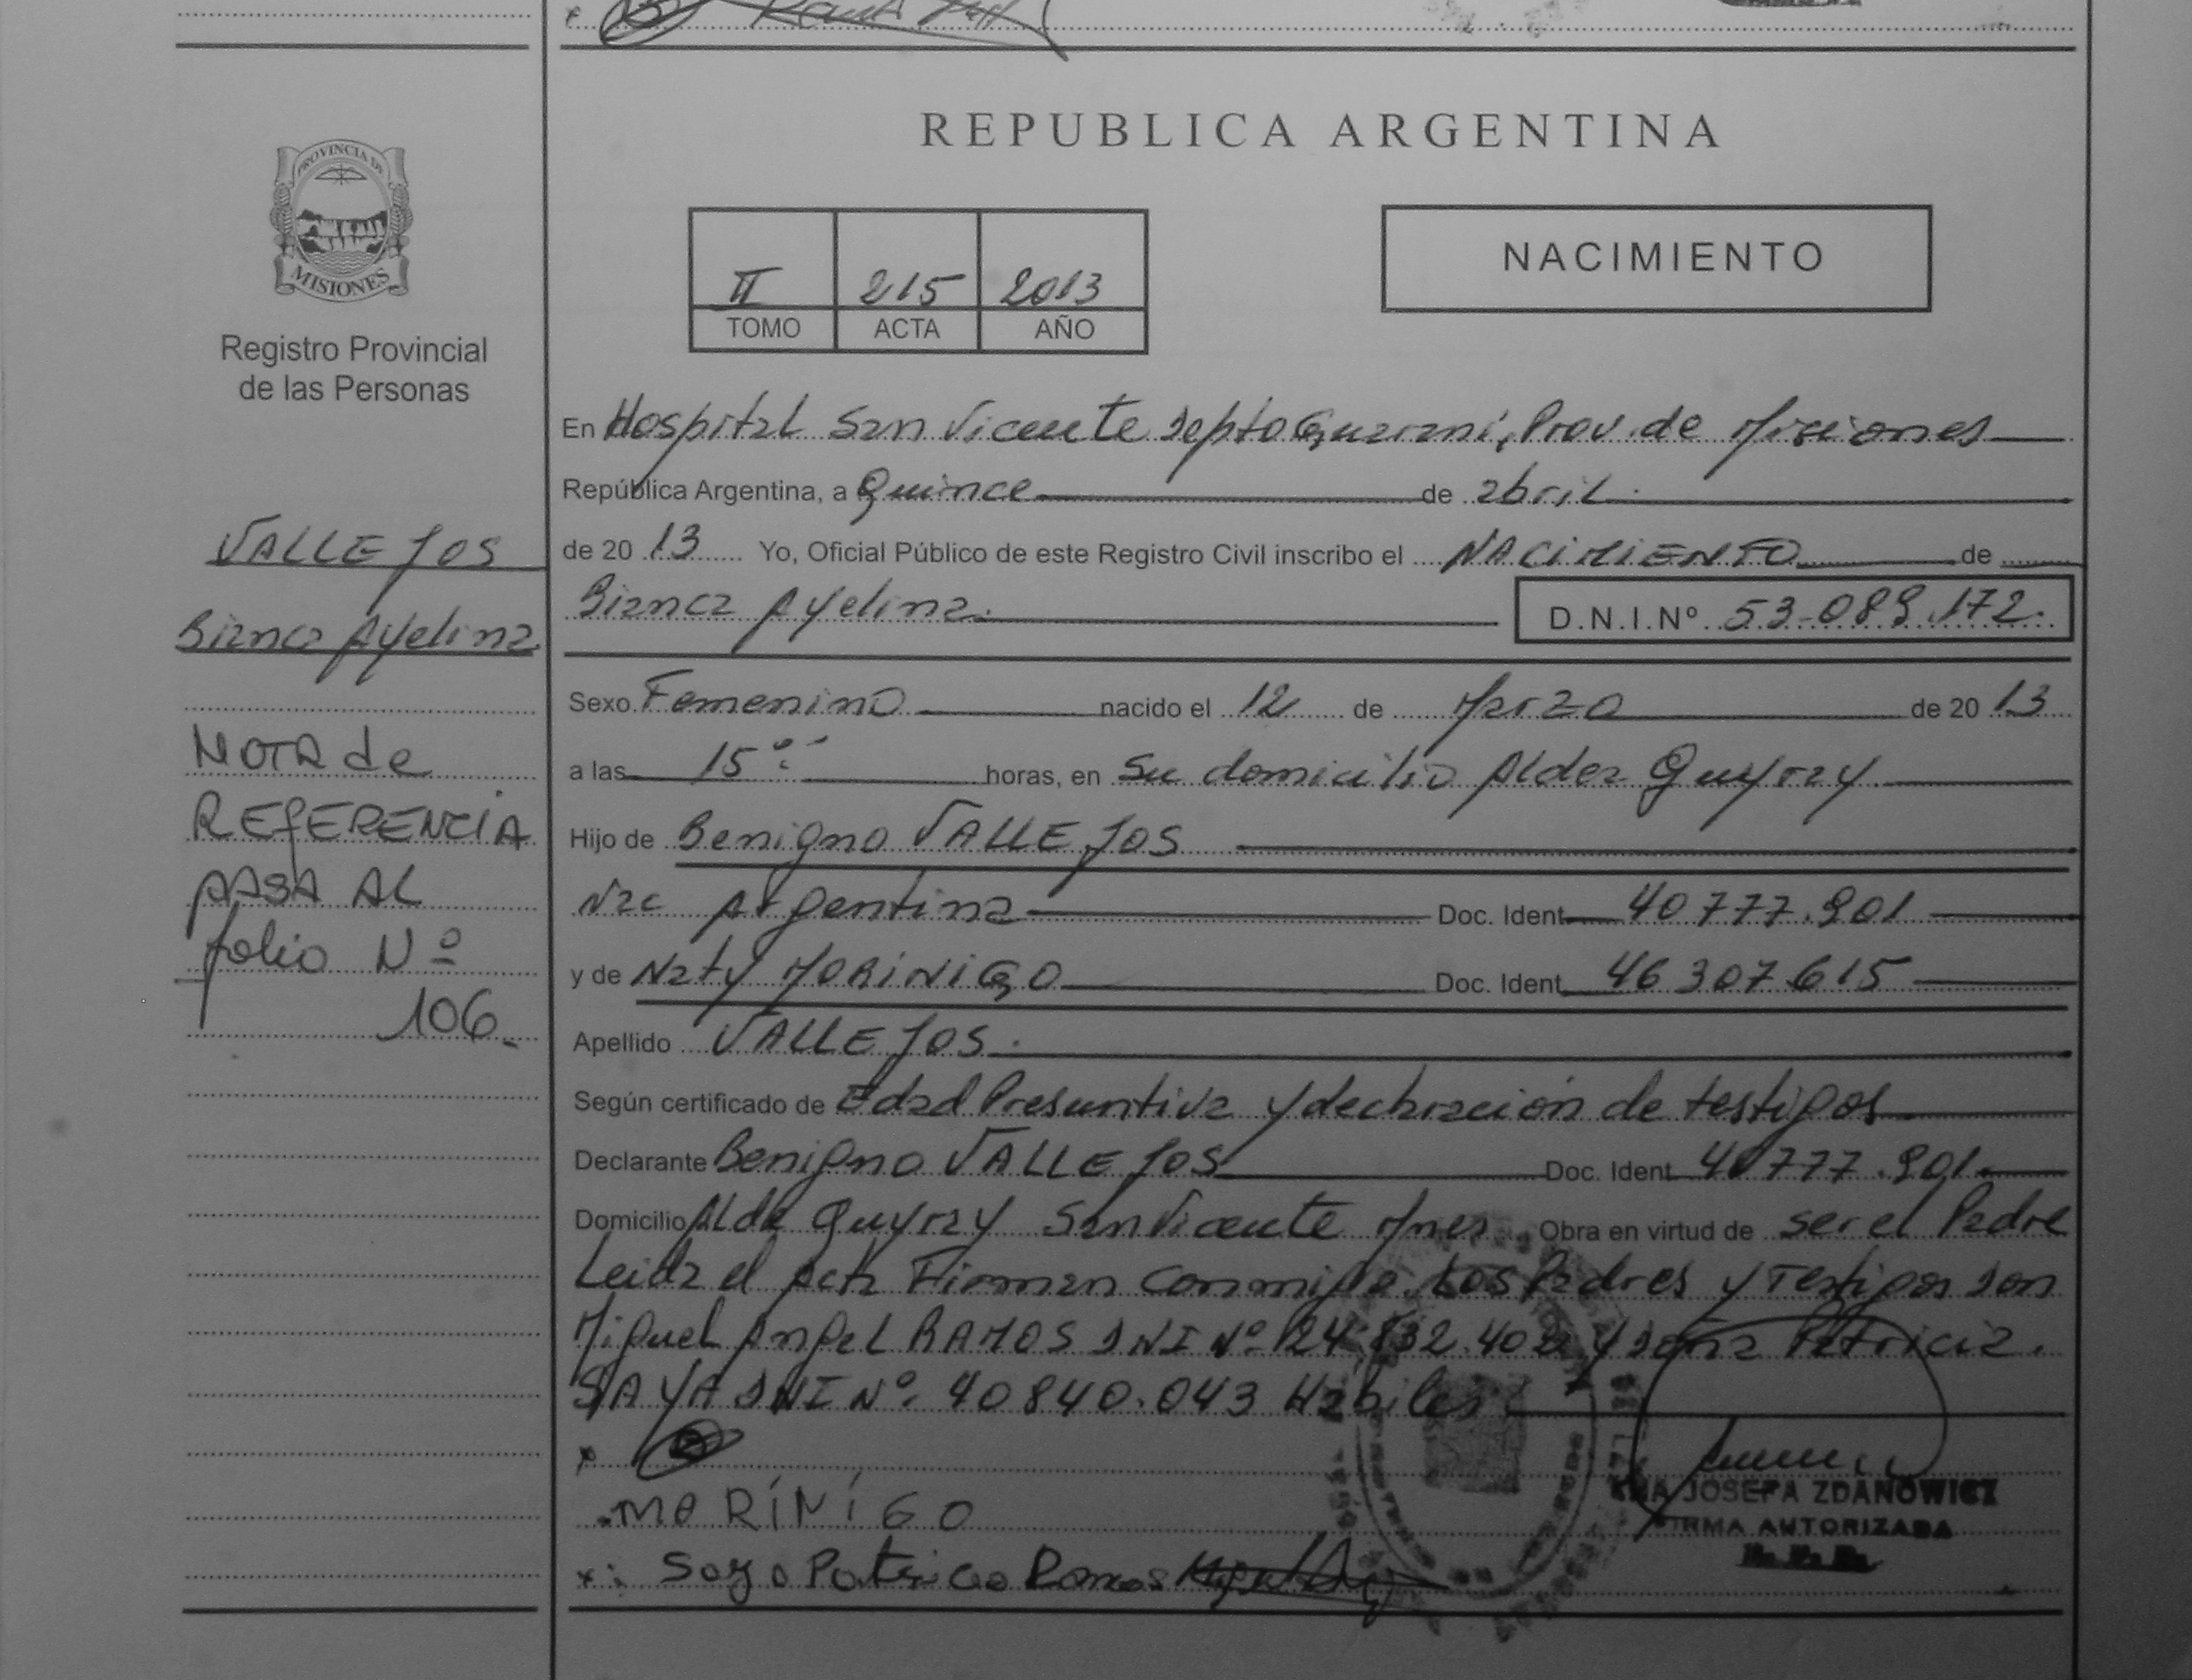 PROVINCIA DE
MISIONES
Registro Provincial
de las Personas
VALLEJOS
Bianca Ayelina
NOTA de
REFERENCIA
PASA AL
folio Nº
106
REPUBLICA ARGENTINA
NACIMIENTO
II 215 2013
TOMO ACTA AÑO
En Hospital San Vicente Depto Guarani, Prov. de Misiones
República Argentina, a Quince de abril.
de 2013 Yo, Oficial Público de este Registro Civil inscribo el NACIMIENTO de
Bianca Ayelina. D.N.I.Nº 53.089.172.
Sexo Femenino nacido el 12 de Marzo de 2013
a las 15 horas, en su domicilio Aldea Guyray
Hijo de Benigno VALLEJOS
Nac Argentina Doc. Ident. 40777.901
y de Naty MORINIGO Doc. Ident. 46307.615
Apellido VALLEJOS.
Según certificado de Edad Presuntiva y declaración de testigos
Declarante Benigno VALLEJOS Doc. Ident. 40777.901.
Domicilio Alde Guyray San Vicente Mnes Obra en virtud de ser el Padre
Leida el Acta Firman Conmigo Los Padres y Testigos Don
Miguel Angel RAMOS DNI Nº 24. y doña Patricia.
SAYA DNI Nº. 40840.043 Habiles
x
MORÍNÍGO
x: Saya Patricia Ramos
JOSEFA ZDANOWICZ
FIRMA AUTORIZADA